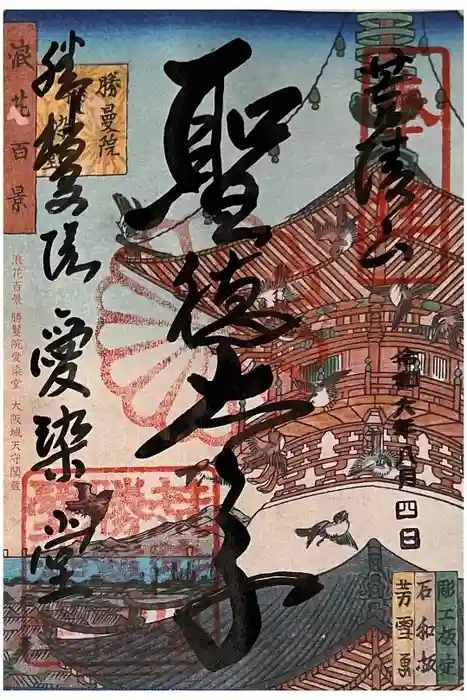 荒陵山
令和六年八月四日
聖徳太子
勝鬘院 愛染堂
勝曼院
浪花百景
浪花百景 勝鬘院愛染堂 大阪城天守閣蔵
彫工板定
石和板
芳雪画